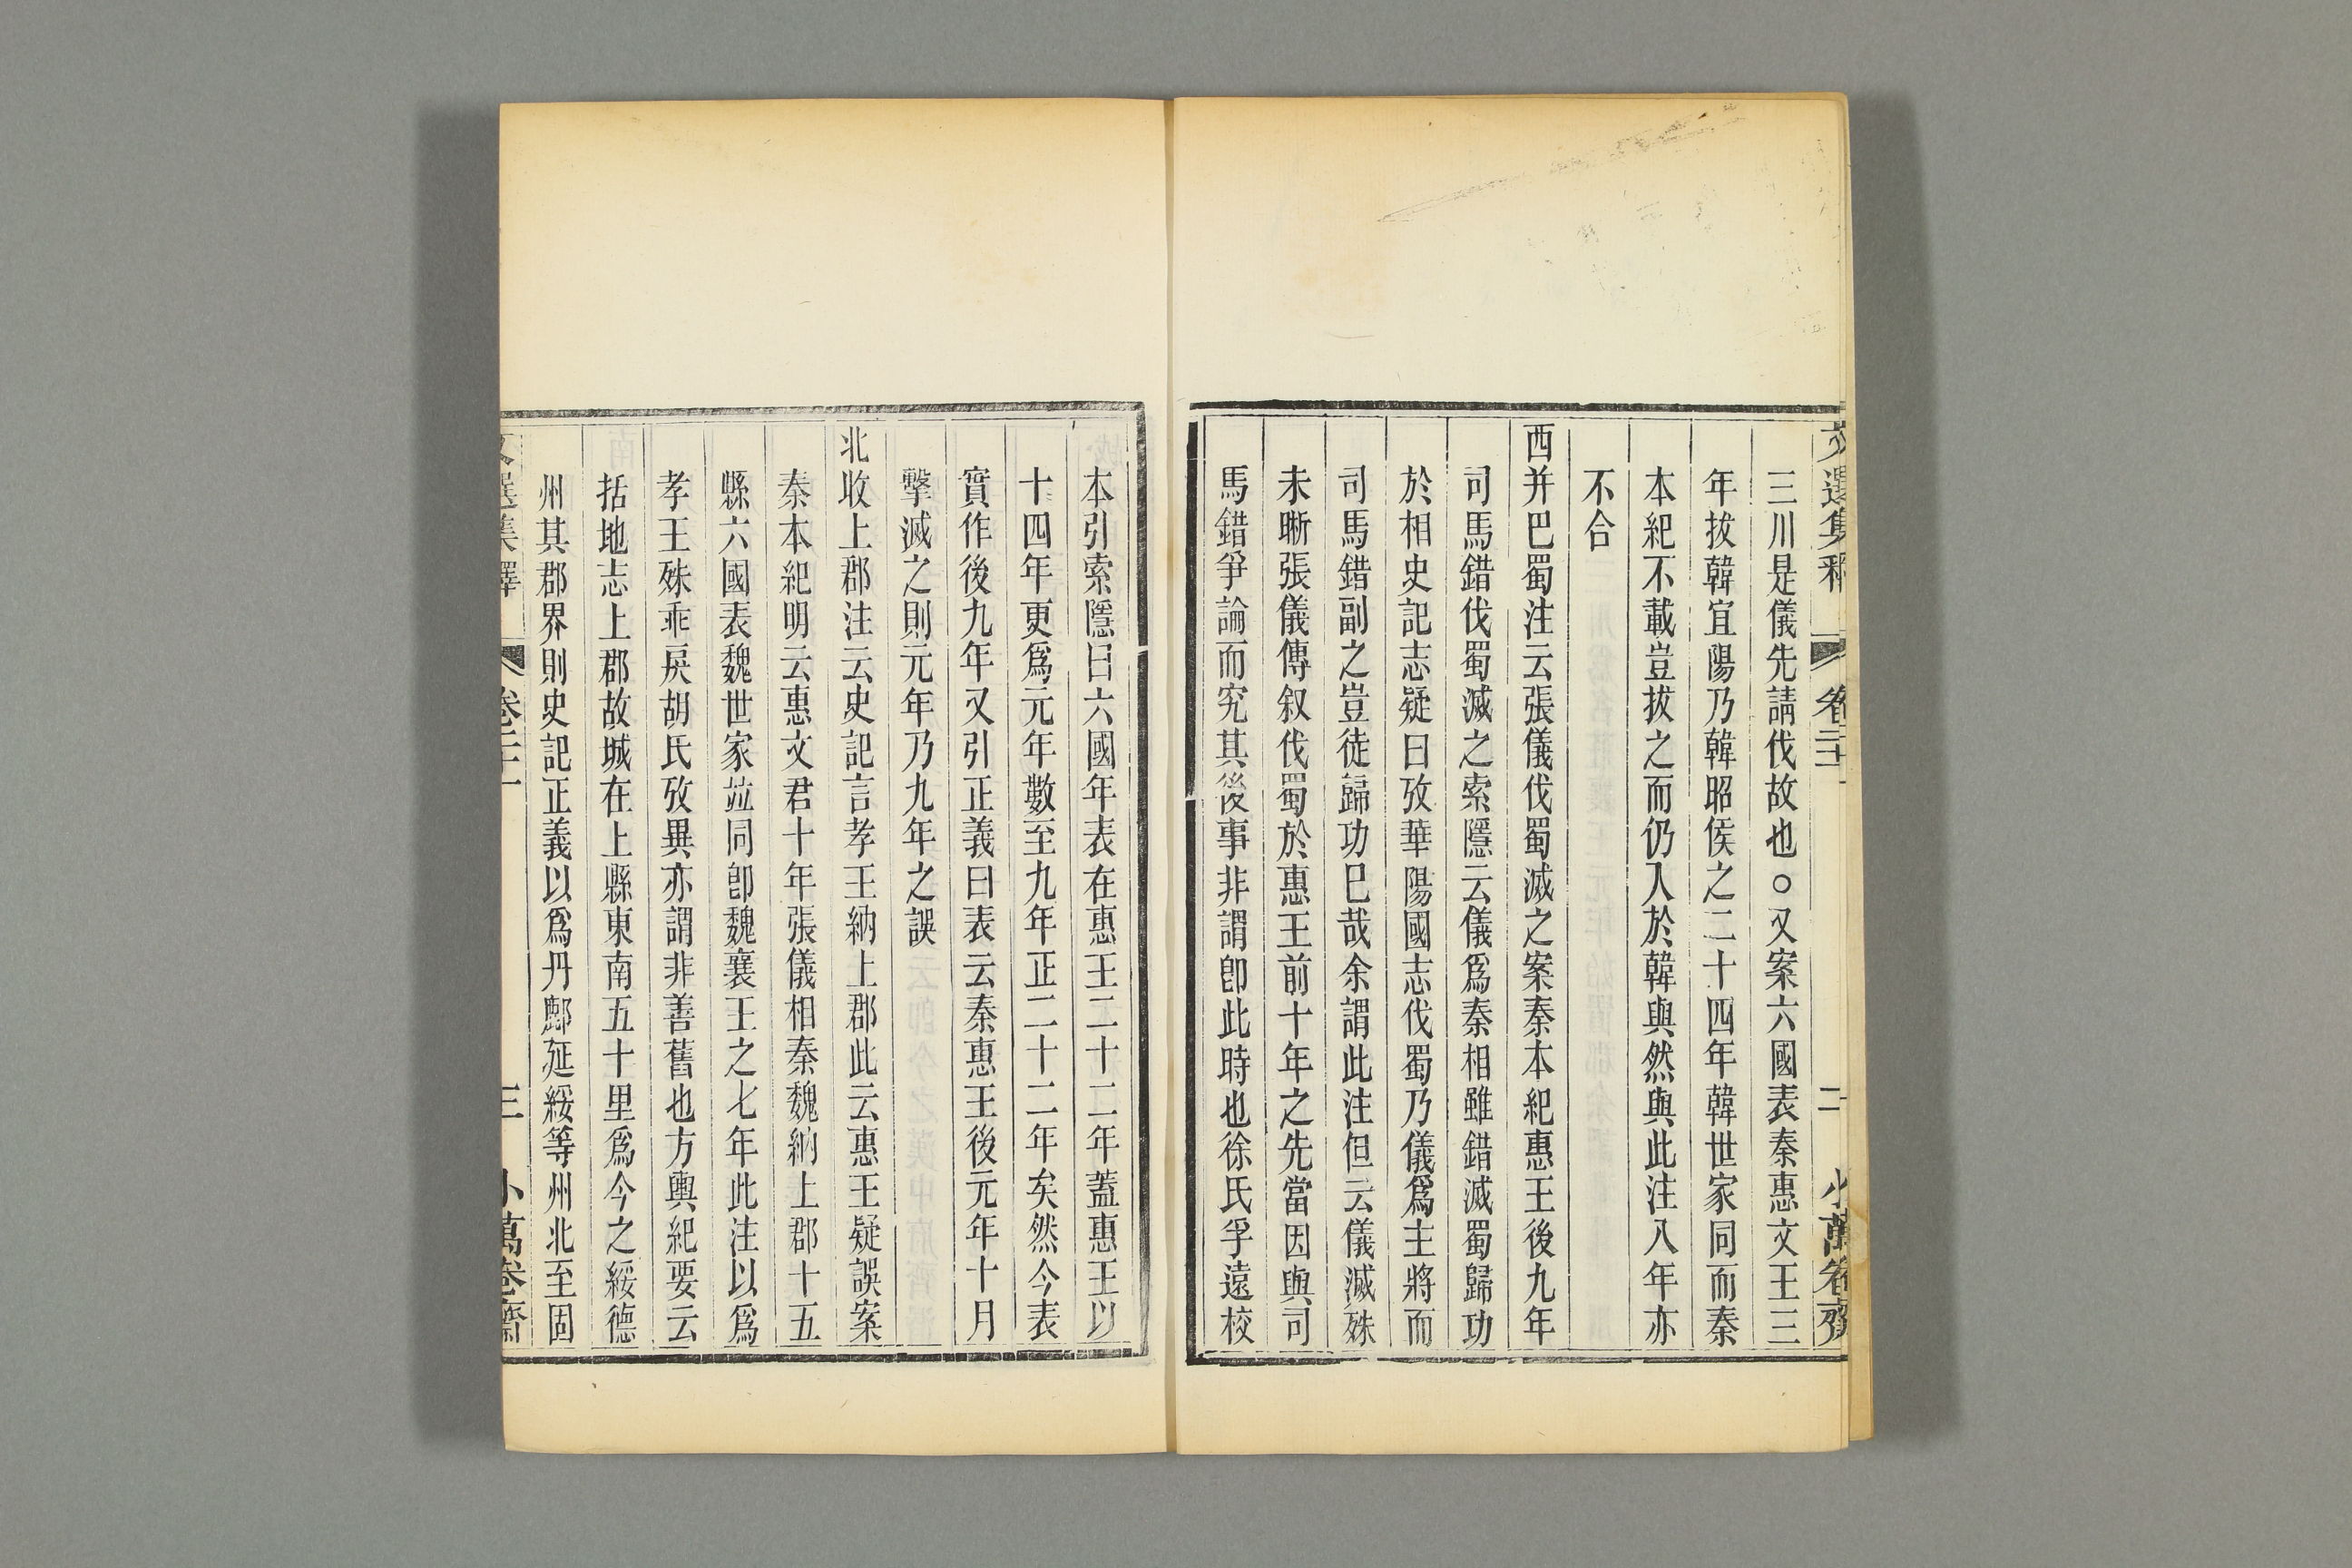 文選集釋 卷二十一 二 小萬卷齋
三川是儀先請伐故也○又案六國表秦惠文王三
年拔韓宜陽乃韓昭侯之二十四年韓世家同而秦
本紀不載豈拔之而仍入於韓與然與此注八年亦
不合
西并巴蜀注云張儀伐蜀滅之案秦本紀惠王後九年
司馬錯伐蜀滅之索隱云儀爲秦相雖錯滅蜀歸功
於相史記志疑曰攷華陽國志伐蜀乃儀爲主將而
司馬錯副之豈徒歸功巳哉余謂此注但云儀滅殊
未晰張儀傳叙伐蜀於惠王前十年之先當因與司
馬錯爭論而究其後事非謂卽此時也徐氏孚遠校
本引索隱曰六國年表在惠王二十二年蓋惠王以
十四年更爲元年數至九年正二十二年矣然今表
實作後九年又引正義曰表云秦惠王後元年十月
擊滅之則元年乃九年之誤
北收上郡注云史記言孝王納上郡此云惠王疑誤案
秦本紀明云惠文君十年張儀相秦魏納上郡十五
縣六國表魏世家竝同卽魏襄王之七年此注以爲
孝王殊乖戾胡氏攷異亦謂非善舊也方輿紀要云
括地志上郡故城在上縣東南五十里爲今之綏德
州其郡界則史記正義以爲丹鄜延綏等州北至固
文選集釋 卷二十一 三 小萬卷齋